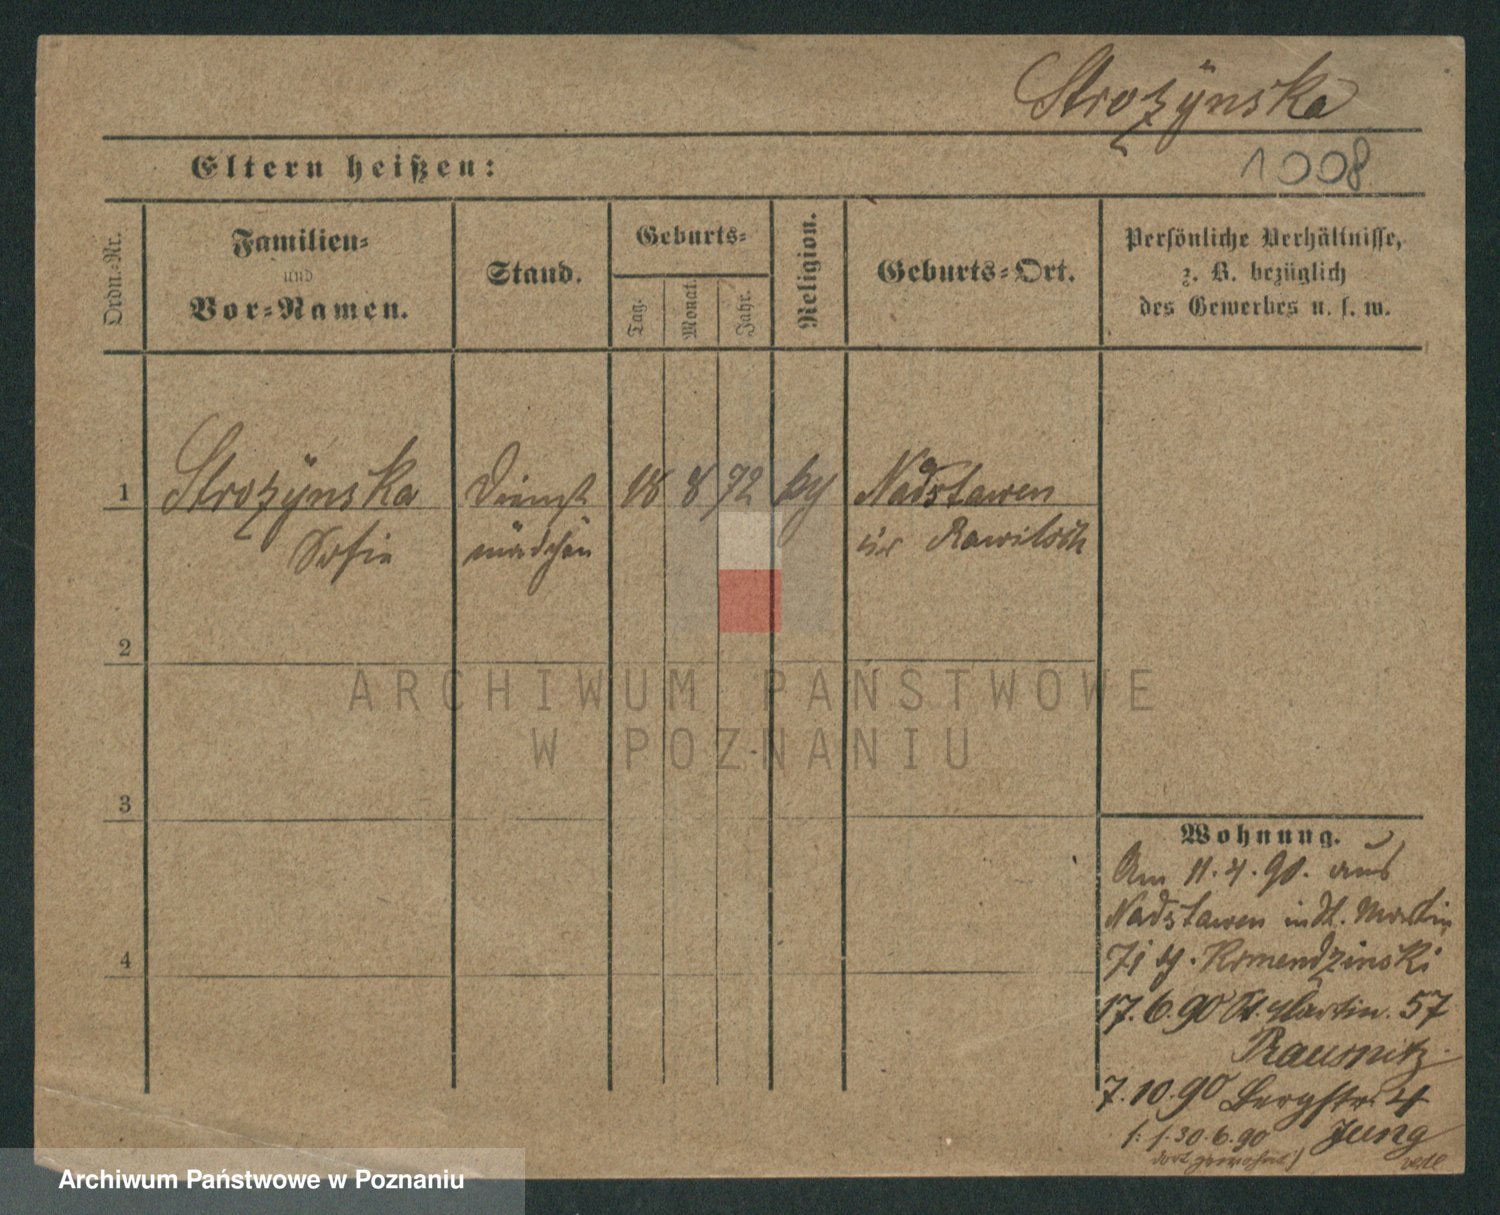 Strozÿnska
Eltern heißen:
1008
Ordn.-Nr.
Familien-
und
Vor-Namen.
Stand.
Geburts-
Tag.
Monat.
Jahr.
Religion.
Geburts-Ort.
Persönliche Verhältnisse,
z. B. bezüglich
des Gewerbes u. s. w.
1
Strozÿnska
Sofie
Dienst
mädchen
18
8
72
Nadstawen
Kr Rawitsch
2
3
4
Wohnung.
Am 11.4.90. aus
Nadstawen in St. Martin
71 Romendzinski
17.6.90 St. Martin. 57
Rausnitz
7.10.90 Bergstr. 4
Jung
30.6.90
dort gewohnt)
ARCHIWUM PAŃSTWOWE
W POZNANIU
Archiwum Państwowe w Poznaniu